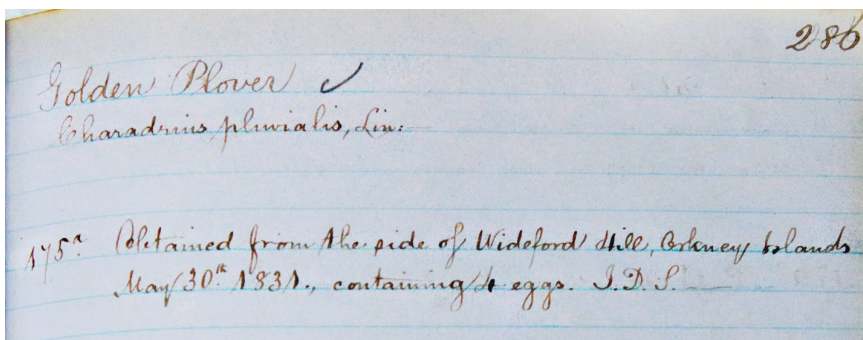 286
Golden Plover ✓
Charadrius pluvialis, Lin:
175.a Obtained from the side of Wideford Hill, Orkney Islands
May 30.th 1831., containing 4 eggs. J.D.S.